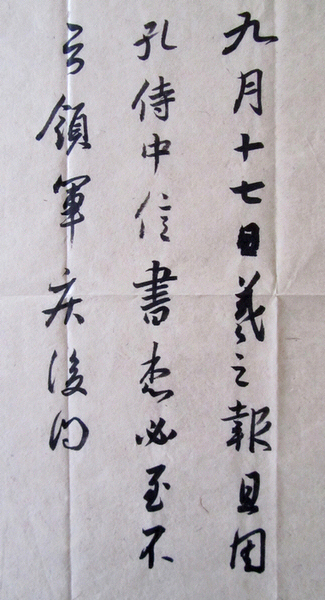 九月十七日羲之報且因
孔侍中信書想必至不
知領軍疾後問